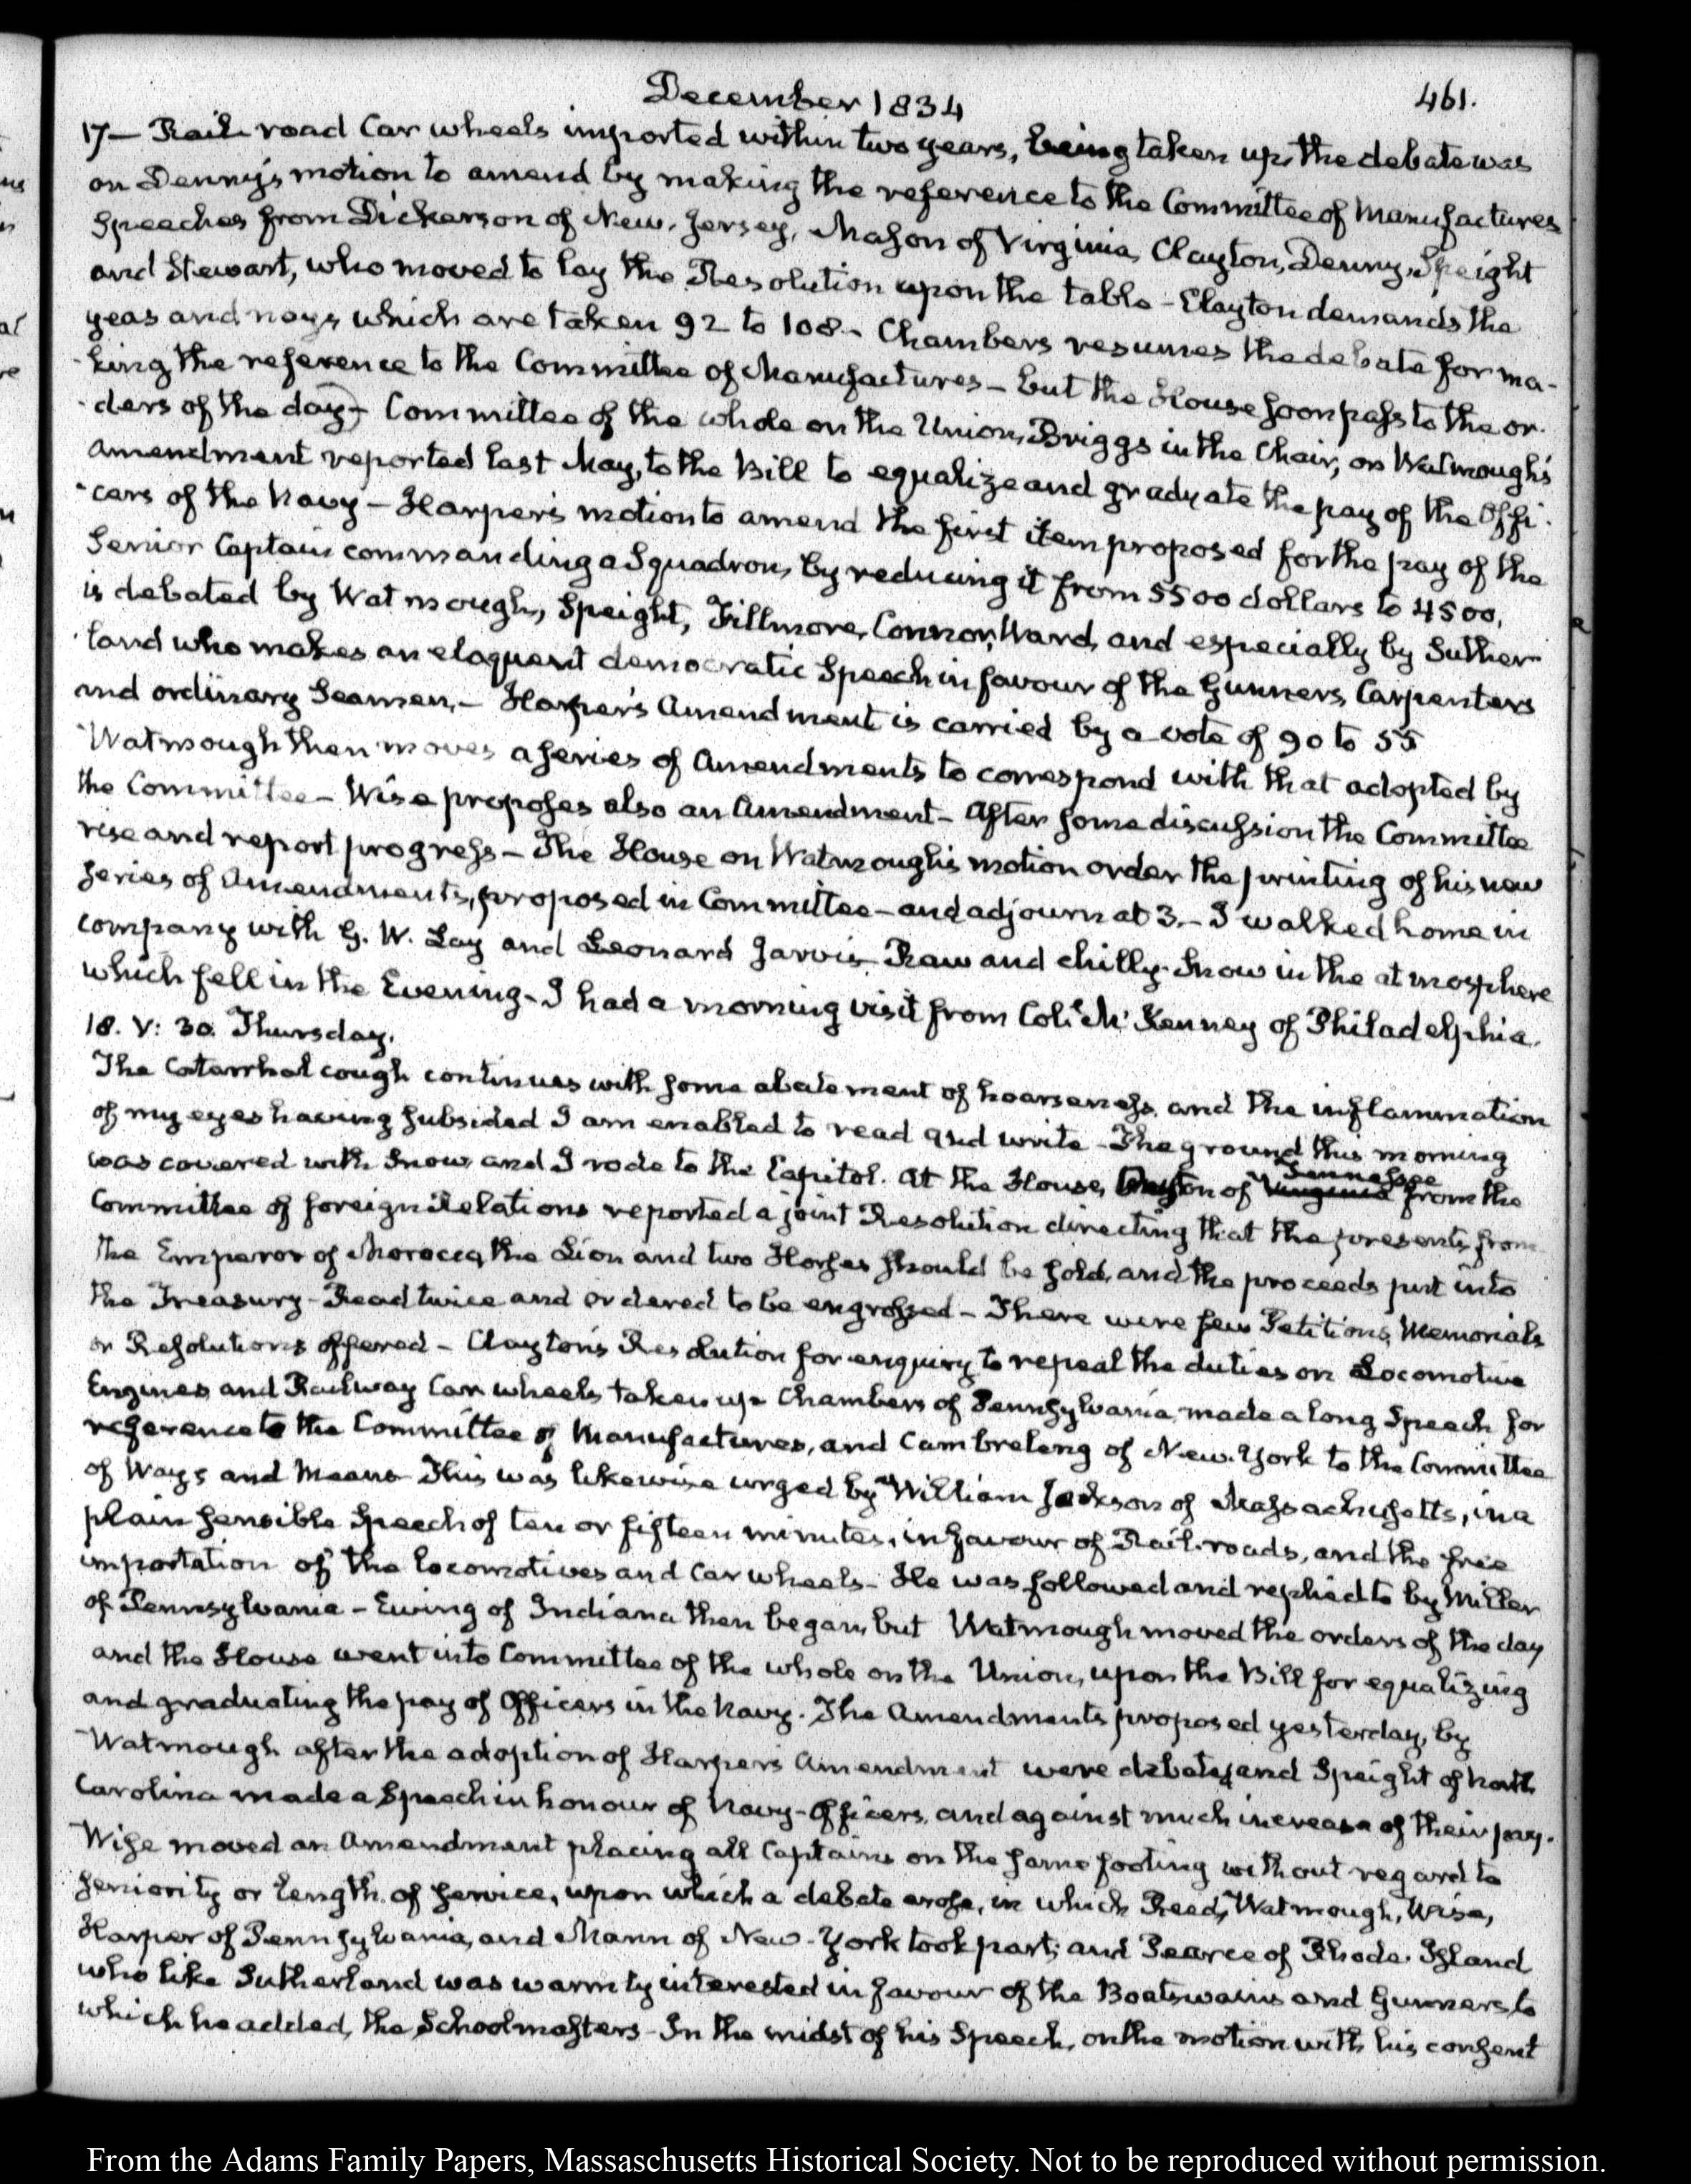 December 1834
461.
17— Rail road Car wheels imported within two years, being taken up, the debate was
on Denny's motion to amend by making the reference to the Committee of Manufactures
Speeches from Dickerson of New-Jersey, Mason of Virginia, Clayton, Denny, Speight
and Stewart, who moved to lay the Resolution upon the table — Clayton demands the
yeas and nays which are taken 92 to 108 — Chambers resumes the debate for ma-
-king the reference to the Committee of Manufactures — but the House soon pass to the or-
-ders of the day — Committee of the whole on the Union, Briggs in the Chair, on Watmough's
amendment reported last May, to the Bill to equalize and graduate the pay of the Offi-
-cers of the Navy — Harper's motion to amend the first item proposed for the pay of the
Senior Captain commanding a Squadron, by reducing it from 5500 dollars to 4500,
is debated by Watmough, Speight, Fillmore, Connor, Ward, and especially by Suther-
-land who makes an eloquent democratic Speech in favour of the Gunners, Carpenters
and ordinary Seamen. — Harper's Amendment is carried by a vote of 90 to 55
Watmough then moves a series of Amendments to correspond with that adopted by
the Committee — Wise proposes also an Amendment — After some discussion the Committee
rise and report progress — The House on Watmough's motion order the printing of his new
series of Amendments, proposed in Committee — and adjourn at 3. — I walked home in
company with G. W. Lay and Leonard Jarvis. Raw and chilly. Snow in the atmosphere
which fell in the Evening — I had a morning visit from Col. McKenney of Philadelphia.
18. V: 30. Thursday.
The Catarrhal cough continues with some abatement of hoarseness, and the inflammation
of my eyes having subsided I am enabled to read and write — The ground this morning
was covered with Snow, and I rode to the Capitol. At the House, of Virginia Tennessee from the
Committee of foreign Relations reported a joint Resolution directing that the presents from
the Emperor of Morocco, the Lion and two Horses should be sold, and the proceeds put into
the Treasury — Read twice and ordered to be engrossed — There were few Petitions, Memorials
or Resolutions offered — Clayton's Resolution for enquiry to repeal the duties on Locomotive
Engines and Railway Car wheels taken up. Chambers of Pennsylvania, made a long Speech for
reference to the Committee of Manufactures, and Cambreleng of New-York to the Committee
of Ways and Means — This was likewise urged by William Jackson of Massachusetts, in a
plain sensible Speech of ten or fifteen minutes, in favour of Rail-roads, and the free
importation of the locomotives and Car wheels — He was followed and replied to by Miller
of Pennsylvania — Ewing of Indiana then began, but Watmough moved the orders of the day
and the House went into Committee of the whole on the Union, upon the Bill for equalizing
and graduating the pay of Officers in the Navy. The Amendments proposed yesterday, by
Watmough after the adoption of Harper's Amendment were debated, and Speight of North
Carolina made a Speech in honour of Navy-Officers, and against much increase of their pay.
Wise moved an Amendment placing all Captains on the same footing without regard to
seniority or length of service, upon which a debate arose, in which Reed, Watmough, Wise,
Harper of Pennsylvania, and Mann of New-York took part; and Pearce of Rhode-Island
who like Sutherland was warmly interested in favour of the Boatswains and Gunners, to
which he added, the Schoolmasters — In the midst of his Speech, on the motion with his consent
From the Adams Family Papers, Massaschusetts Historical Society. Not to be reproduced without permission.